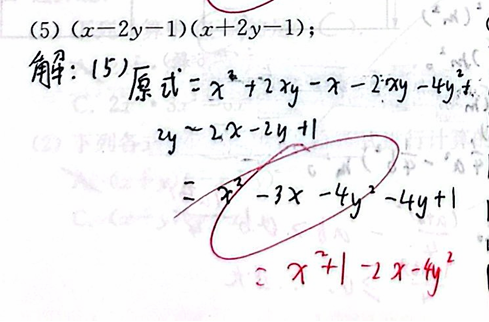 (5) (x-2y-1)(x+2y-1);
解：(5) 原式 = x²+2xy-x-2xy-4y²+
2y-2x-2y+1
= x²-3x-4y²-4y+1
= x²+1-2x-4y²